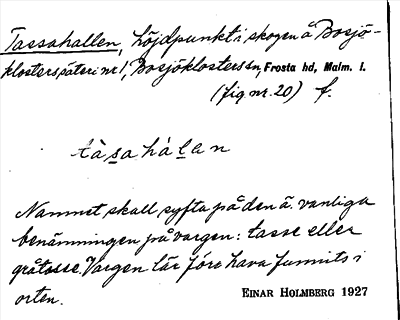 Tassahallen, höjdpunkt i skogen å Bosjö-
klosters säteri nr 1, Bosjöklosters sn, Frosta hd, Malm. l.
(fig. nr. 20) f.
tàsahálan
Namnet skall syfta på den ä. vanliga
benämningen på vargen: tasse eller
gråtasse. Vargen lär förr hava funnits i
orten.
EINAR HOLMBERG 1927